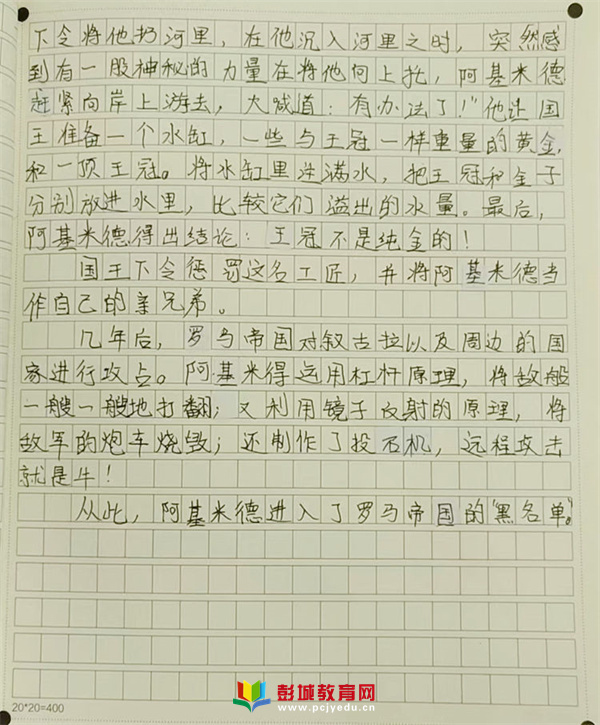 下令将他扔河里，在他沉入河里之时，突然感
到有一股神秘的力量在将他向上托，阿基米德
赶紧向岸上游去，大喊道：有办法了！"他让国
王准备一个水缸，一些与王冠一样重量的黄金，
和一顶王冠。将水缸里注满水，把王冠和金子
分别放进水里，比较它们溢出的水量。最后，
阿基米德得出结论：王冠不是纯金的！
国王下令惩罚这名工匠，并将阿基米德当
作自己的亲兄弟。
几年后，罗马帝国对叙古拉以及周边的国
家进行攻占。阿基米得运用杠杆原理，将敌船
一艘一艘地打翻；又利用镜子反射的原理，将
敌军的炮车烧毁；还制作了投石机，远程攻击
就是牛！
从此，阿基米德进入了罗马帝国的"黑名单"。
20*20=400
彭城教育网
www.pcjyedu.cn